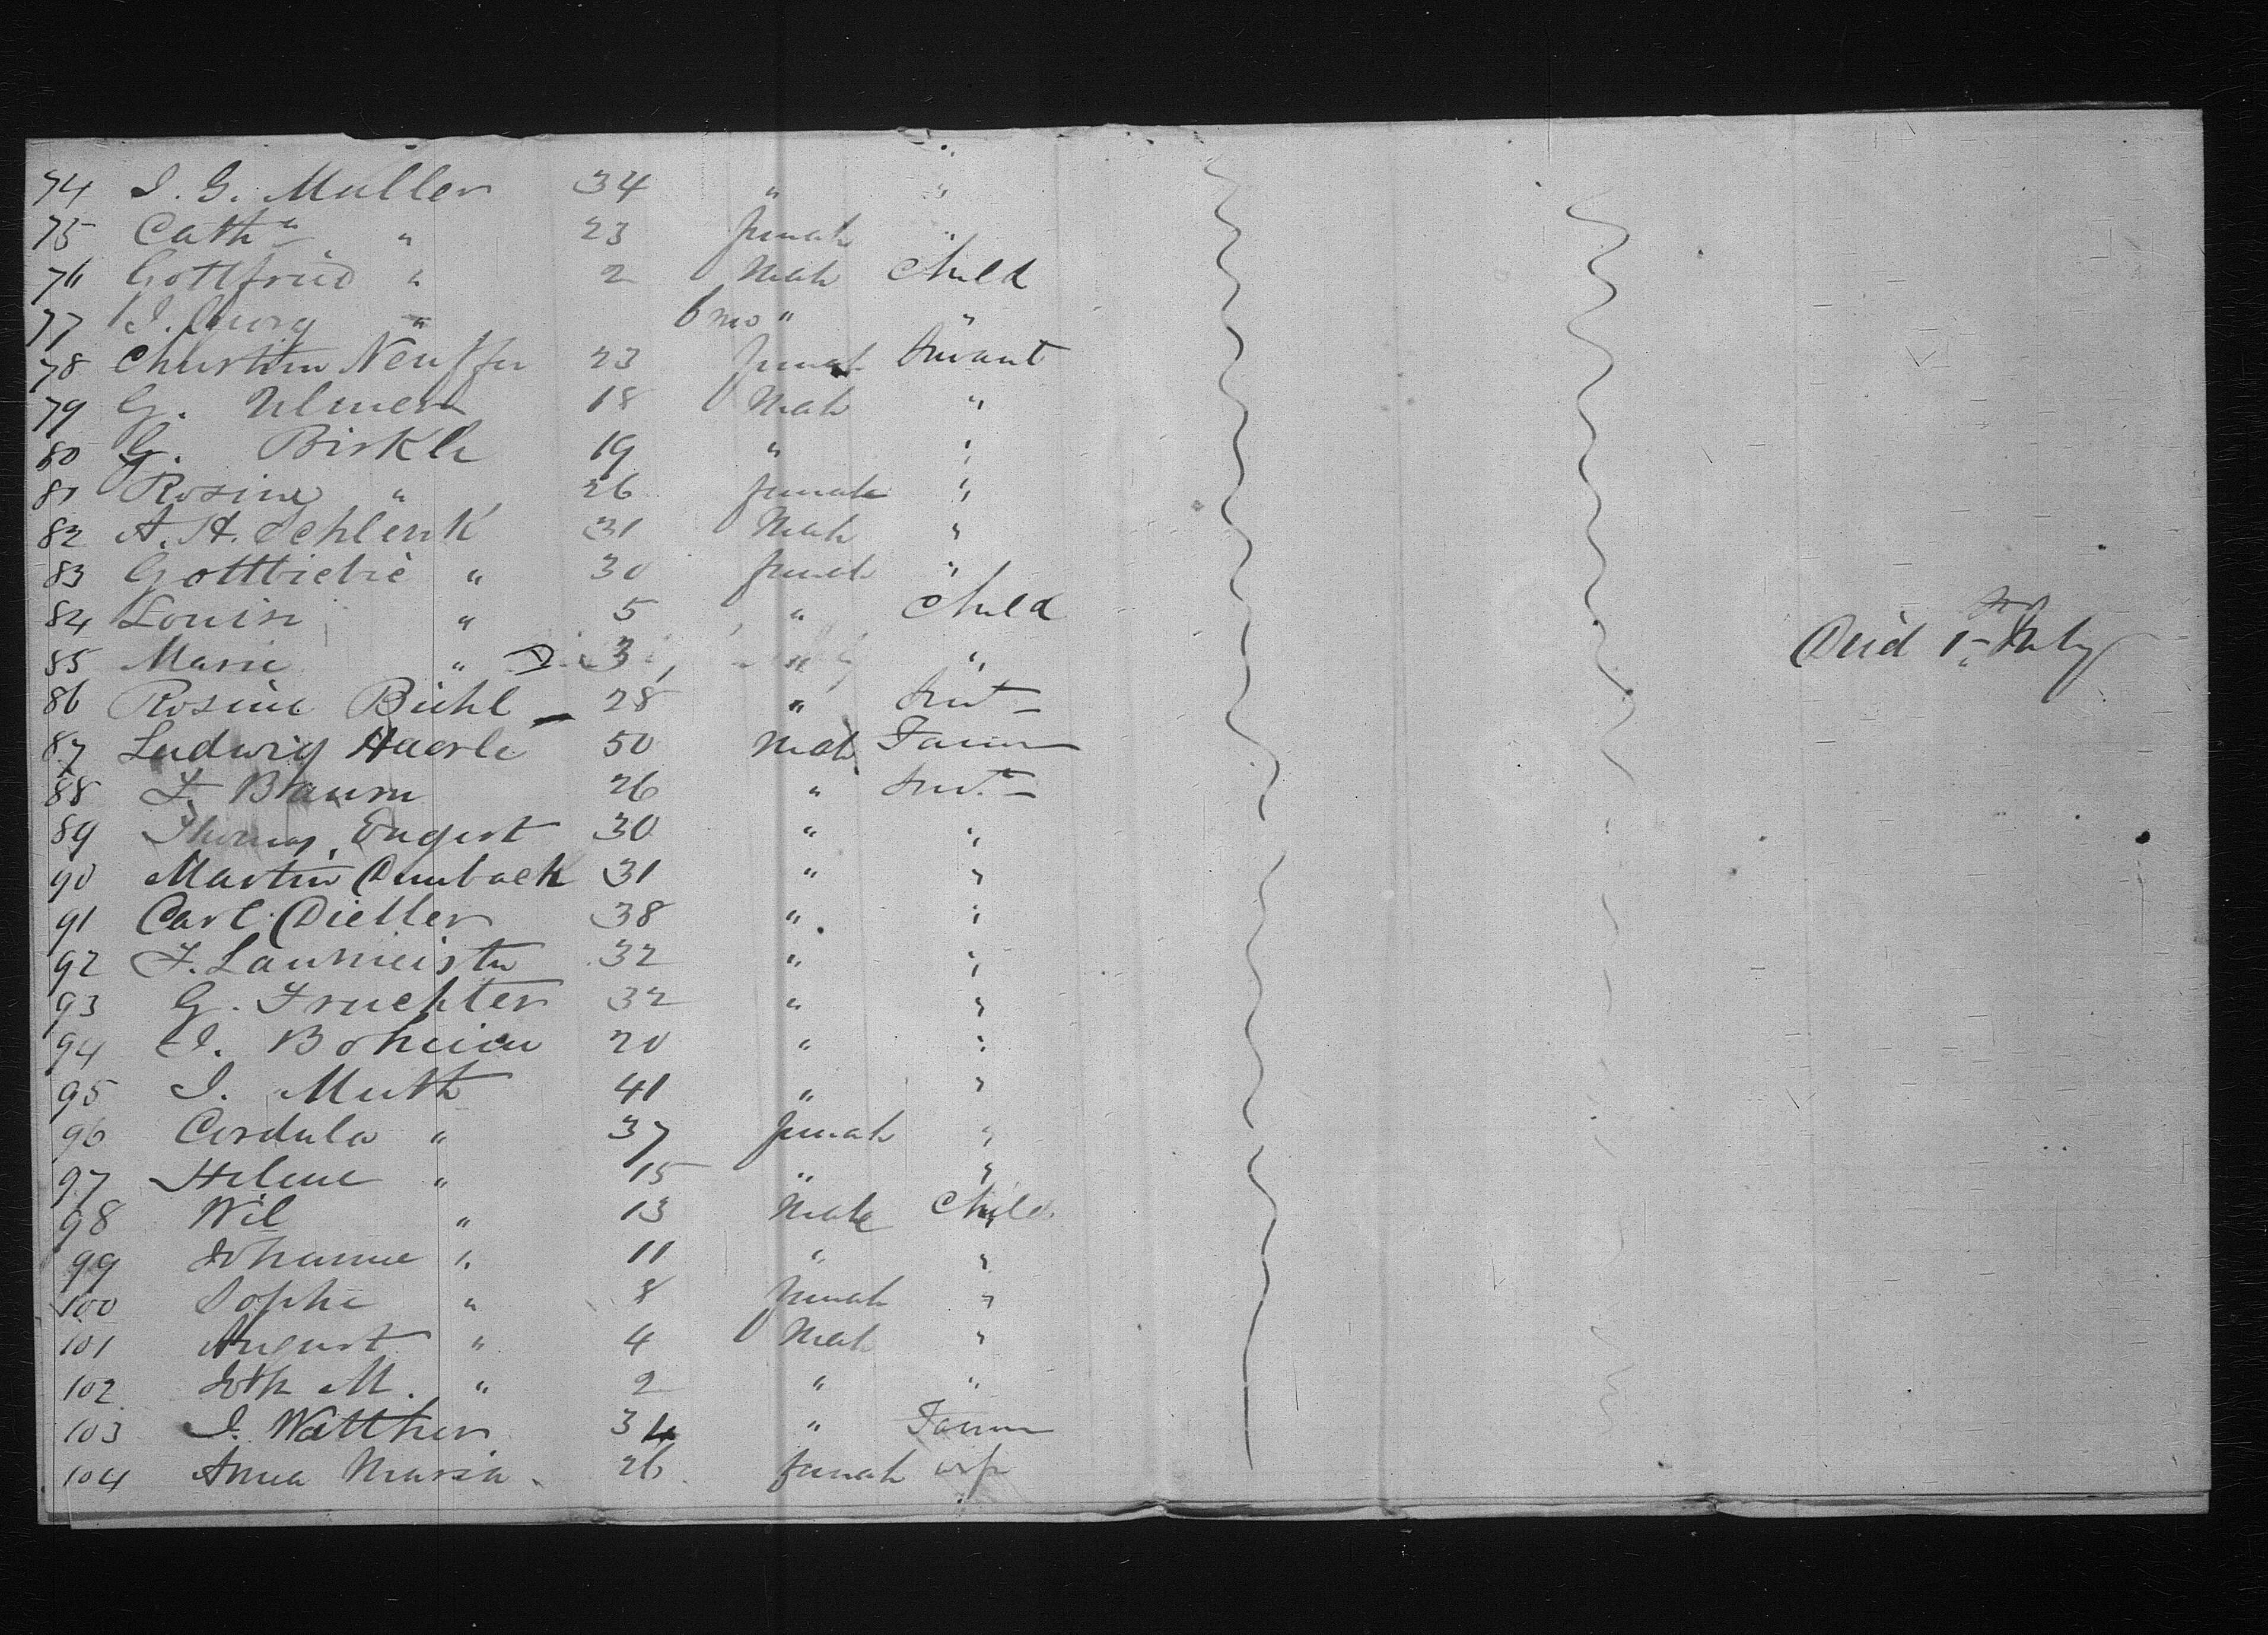 74 J. G. Muller 34 " "
75 Cath a " 23 female "
76 Gottfried " 2 Male Child
77 J. Georg " 6 mo " "
78 Christin Neuffer 23 female Servant
79 G. Ulmer 18 Male "
80 G. Birkle 19 " "
81 Rosine " 26 female "
82 A. H. Schlenk 31 Male "
83 Gottliebie " 30 female "
84 Louise " 5 " Child
85 Marie " D 3 " " Died 1st July
86 Rosine Biehl 28 " Servt
87 Ludwig Haerle 50 Male Farmer
88 F. Baum 26 " Servt
89 Thomas Engert 30 " "
90 Martin Dumbach 31 " "
91 Carl Dietler 38 " "
92 F. Laumeister 32 " "
93 G. Fruchter 32 " "
94 J. 20 " "
95 J. Muth 41 " "
96 Cordula " 37 female "
97 Helene " 15 " "
98 Wil " 13 Male Child
99 Johanne " 11 " "
100 Sophe " 8 female "
101 August " 4 Male "
102 M. " 2 " "
103 J. Watther 34 " Farmer
104 Anna Maria 26 female wife